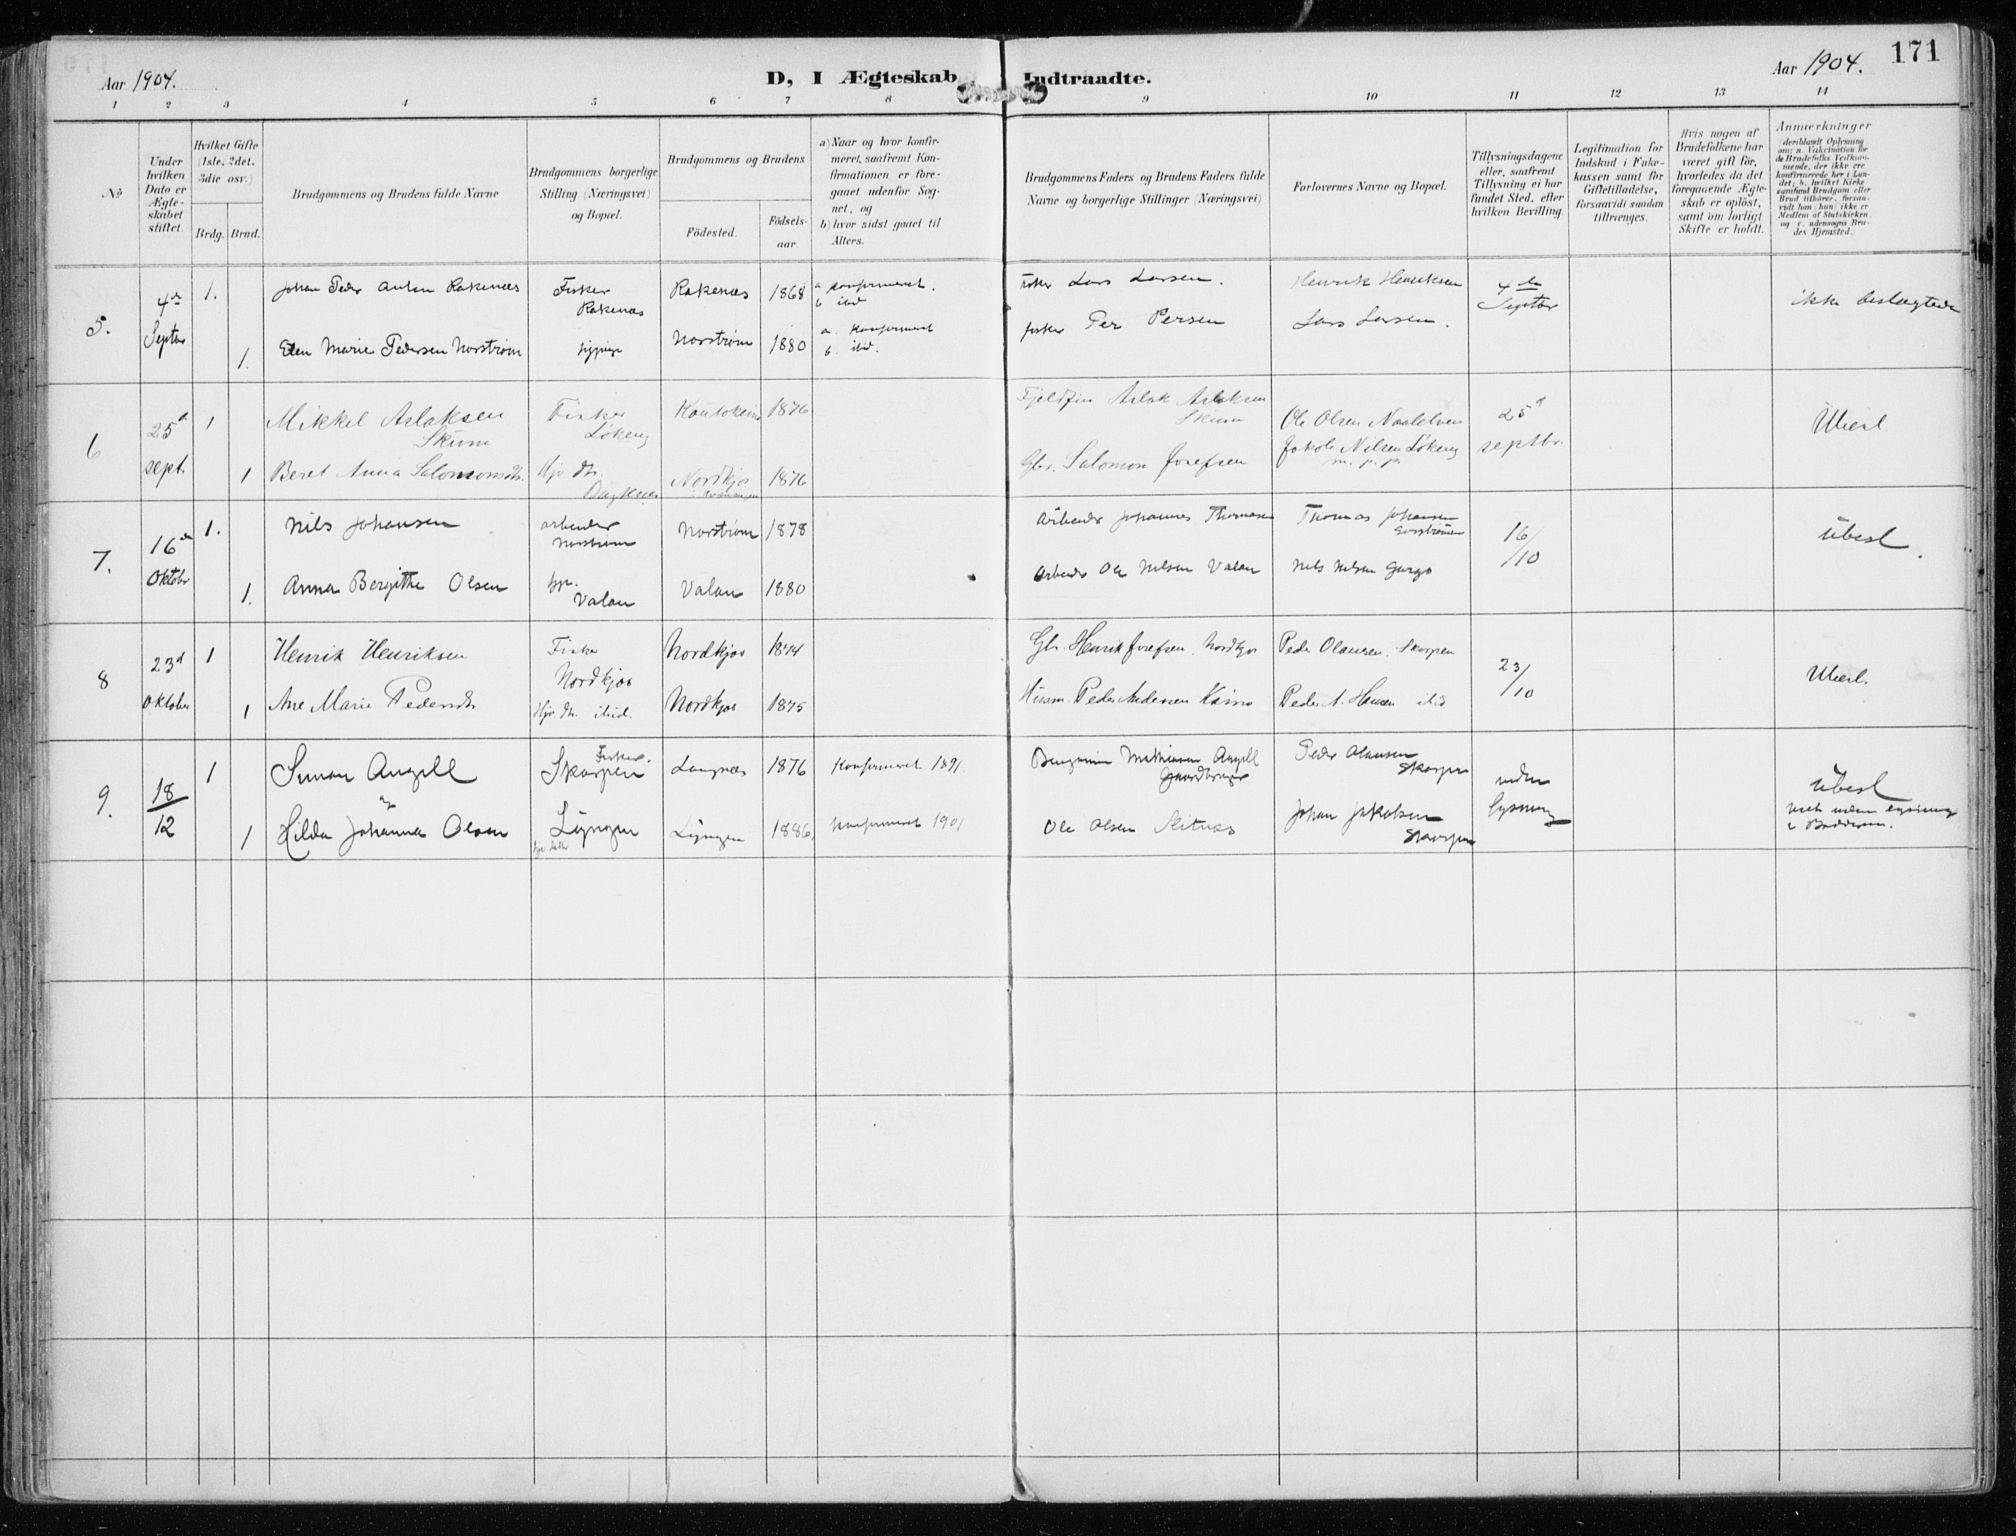 Aar 1904.
D, I Ægteskab Indtraadte.
Aar 1904.
171
1 2 3 4 5 6 7 8 9 10 11 12 13 14
No
Under hvilken Dato er Ægte-skabet stiftet.
Hvilket Gifte (1ste, 2det, 3die osv.)
Brdg. Brud.
Brudgommens og Brudens fulde Navne
Brudgommens borgerlige Stilling (Næringsvei) og Bopæl.
Brudgommens og Brudens
Födested.
Födsels-aar.
a) Naar og hvor konfir-meret, saafremt Kon-firmationen er fore-gaaet udenfor Sog-net, og
b) hvor sidst gaaet til Alters.
Brudgommens Faders og Brudens Faders fulde Navne og borgerlige Stillinger (Næringsvei)
Forlovernes Navne og Bopæl.
Tillysningsdagene eller, saafremt Tillysning ei har fundet Sted, efter hvilken Bevilling.
Legitimation for Indskud i Enke-kassen samt for Giftetilladelse, forsaavidt saadan tiltrænges.
Hvis nogen af Brudefolkene har været gift för, hvorledes da det foregaaende Ægte-skab er oplöst, samt om lovligt Skifte er holdt.
Anmærkninger (deriblandt Oplysning om: a. Vakcination for de Brudefolks Vedkom-mende, der ikke ere konfirmerede her i Lan-det; b. hvilket Kirke-samfund Brudgom eller Brud tilhörer, forsaa-vidt han (hun) ikke er Medlem af Statskirken, og c. udensogns Bru-des Hjemsted.)
5.
4de Septbr
1.
Johan Peder Anton Rakenæs
Fisker Rakenæs
Rakenæs
1868
a konfirmeret.
b ibid
fisker Lars Larsen.
Henrik Henriksen
4de Septbr
ikke beslægtede
1.
Elen Marie Pedersen Norstrøm
Norstrøm
1880
a. konfirmeret
b. ibid.
fisker Per Persen
Lars Larsen.
6
25d sept.
1
Mikkel Aslaksen Skum
Fisker Løkeng
Kautokeino
1876
Fjeldfin Aslak Aslaksen Skum
Ole Olsen
25d septbr.
Ubesl.
1
Beret Anna Salomonsdtr.
Hjv. dtr.
Nordkjos
1876
Gbr. Salomon Josefsen
Jakob Nilsen Løkeng
m. p. p.
7.
16de Oktobr
1.
Nils Johansen
arbeider Norstrøm
Norstrøm
1878
Arbeider Johannes Thomasen
Thomas Johansen
16/10
Ubesl.
1.
Anna Bergitthe Olsen
Valan
Valan
1880
Arbeider Ole Nilsen Valan
Nils Nilsen Gargo
8
23d Oktober
1
Henrik Henriksen
Fisker Nordkjos
Nordkjos
1874
Gbr. Henrik Josefsen, Nordkjos
Peder Olausen, Skorpen
23/10
Ubesl.
1
Ane Marie Pedersdtr
Hjv. dtr. ibid.
Nordkjos
1875
Husm. Peder Andersen
Peder A. Hansen ibid
9.
18/12
1
Simon Angell
Fisker. Skorpen
Langnæs
1876
Konfirmeret 1891.
Benjamin Mathiasen Angell Gaardbruger
Peder Olausen Skorpen
uden lysning
Ubesl
og
1
Hilda Johanna Olsen
Lyngen
Lyngen
1886
konfirmeret 1901
Ole Olsen
Johan Jakobsen Skorpen